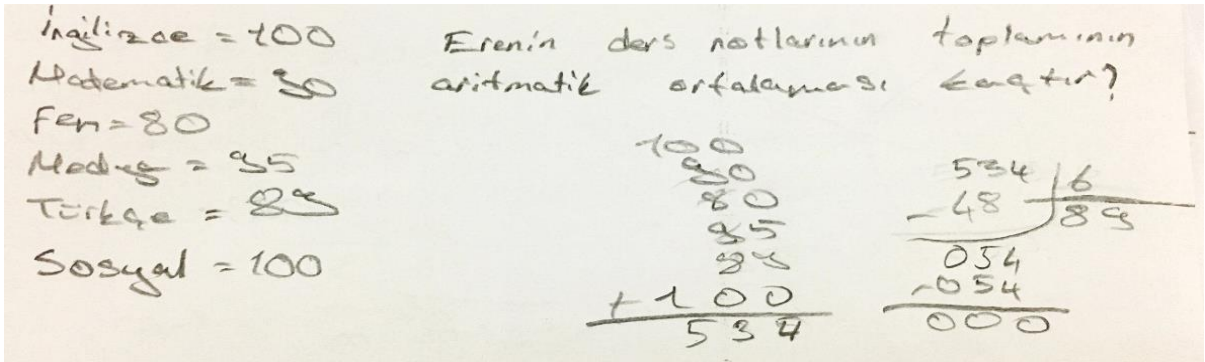 İngilizce = 100
Matematik = 90
Fen = 80
= 95
Türkçe = 89
Sosyal = 100
Erenin ders notlarının toplamının
aritmatik ortalaması kaçtır?
100
90
80
95
89
+ 100
534
534 6
- 48 89
054
- 054
000